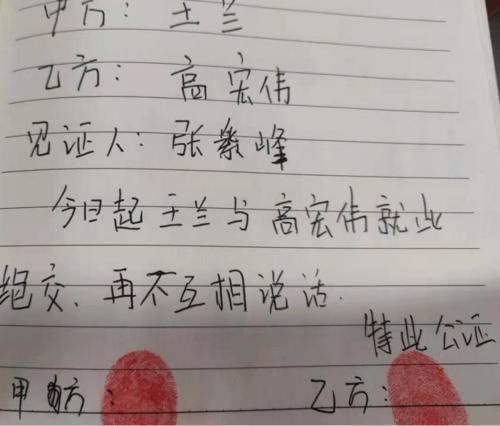 甲方：王兰
乙方：高宏伟
见证人：张紫峰
今日起王兰与高宏伟就此
绝交，再不互相说话.
特此公证
甲方：
乙方：